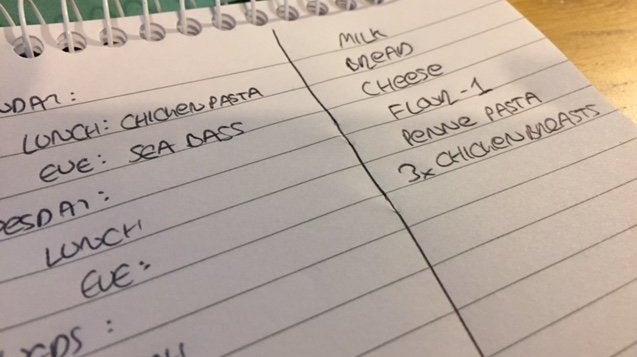 LUNCH: CHICKEN PASTA
EVE: SEA BASS
LUNCH
EVE:
MILK
BREAD
CHEESE
FLAN-1
PENNE PASTA
3x CHICKEN BREASTS